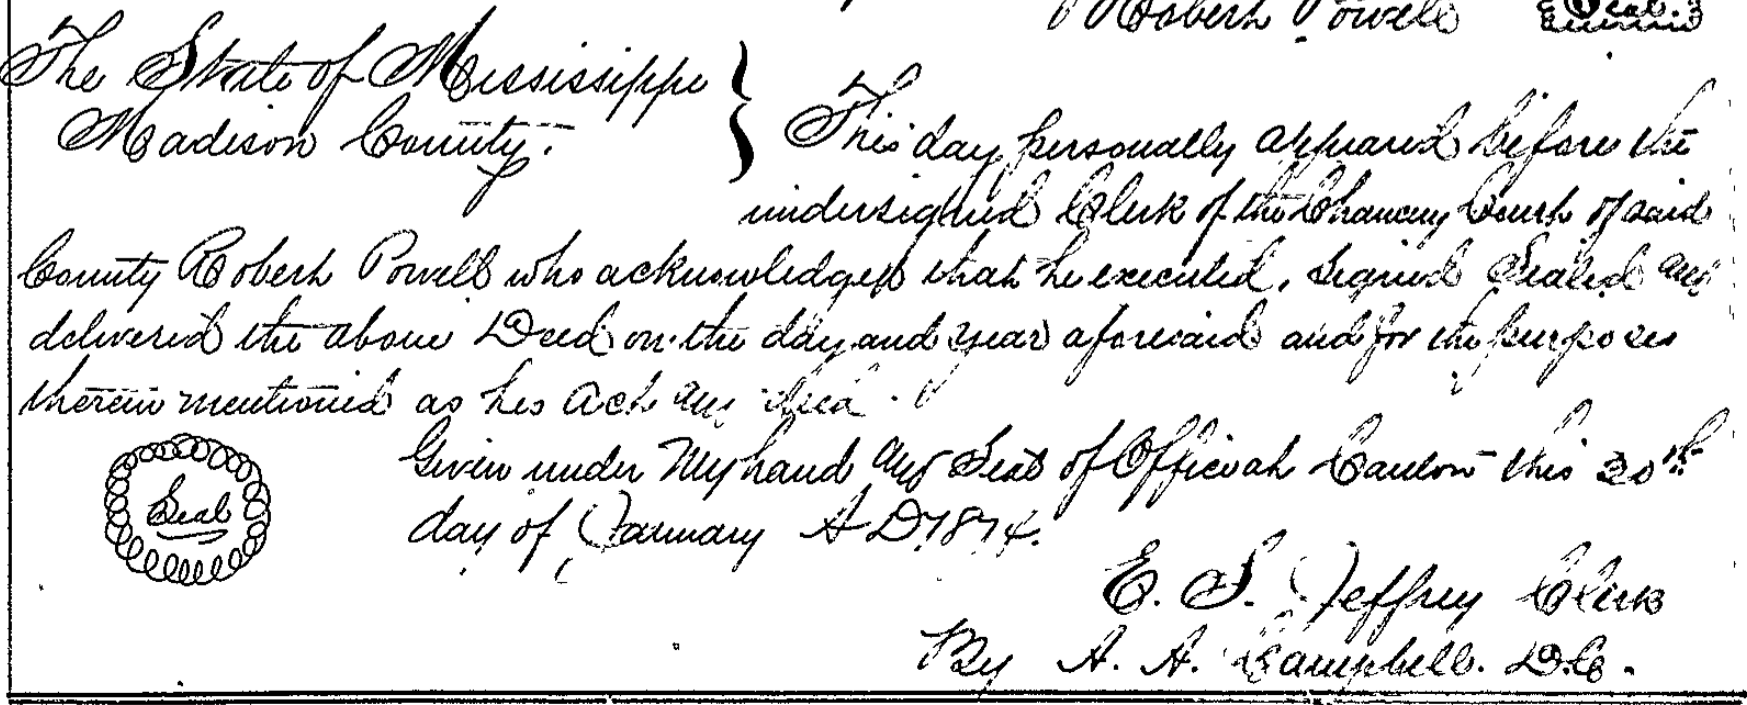 Robert Powell Seal
The State of Mississippi
Madison County.
This day personally appeared before the
undersigned Clerk of the Chancery Court of said
County Robert Powell who acknowledged that he executed, signed Sealed and
delivered the above Deed on the day and year aforesaid and for the purposes
therein mentioned as his act and deed.
Given under my hand and Seal of Office at Canton this 20th
Seal
day of January A D 1874.
E. S. Jeffrey Clerk
By A. A. Campbell. D.C.